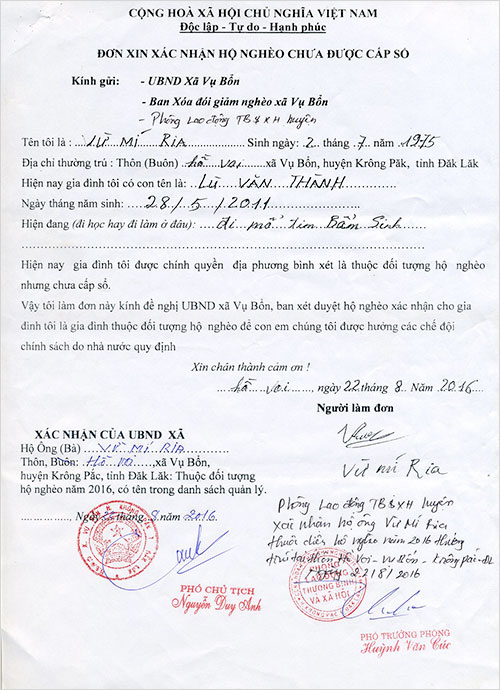 CỘNG HOÀ XÃ HỘI CHỦ NGHĨA VIỆT NAM
Độc lập - Tự do - Hạnh phúc
ĐƠN XIN XÁC NHẬN HỘ NGHÈO CHƯA ĐƯỢC CẤP SỔ
Kính gửi: - UBND Xã Vụ Bổn
- Ban Xóa đói giảm nghèo xã Vụ Bổn
- Phòng Lao động TB&XH huyện
Tên tôi là : VỪ MÍ RIA Sinh ngày: 2 tháng 7 năm 1975
Địa chỉ thường trú : Thôn (Buôn) Hồ Voi xã Vụ Bổn, huyện Krông Păk, tỉnh Đăk Lăk
Hiện nay gia đình tôi có con tên là: LÙ VĂN THÀNH
Ngày tháng năm sinh: 28/5/2011
Hiện đang (đi học hay đi làm ở đâu): đi mổ tim Bẩm Sinh
Hiện nay gia đình tôi được chính quyền địa phương bình xét là thuộc đối tượng hộ nghèo
nhưng chưa cấp sổ.
Vậy tôi làm đơn này kính đề nghị UBND xã Vụ Bổn, ban xét duyệt hộ nghèo xác nhận cho gia
đình tôi là gia đình thuộc đối tượng hộ nghèo để con em chúng tôi được hưởng các chế đội
chính sách do nhà nước quy định
Xin chân thành cảm ơn !
Hồ Voi, ngày 22 tháng 8 Năm 2016
Người làm đơn
Vừ mí Ria
XÁC NHẬN CỦA UBND XÃ
Hộ Ông (Bà) VỪ MÍ RIA
Thôn, Buôn: Hồ Voi, xã Vụ Bổn,
huyện Krông Pắc, tỉnh Đăk Lăk: Thuộc đối tượng
hộ nghèo năm 2016, có tên trong danh sách quản lý.
Ngày tháng 8 năm 2016
PHÓ CHỦ TỊCH
Nguyễn Duy Anh
Phòng Lao động TB&XH huyện
xác nhận hộ ông Vừ Mí Ria
thuộc diện hộ nghèo năm 2016 thường
trú tại thôn Hồ Voi - Vụ Bổn - Krông pắc - ĐL
22/8/2016
PHÒNG
LAO ĐỘNG
THƯƠNG BINH
VÀ XÃ HỘI
PHÓ TRƯỞNG PHÒNG
Huỳnh Văn Cúc